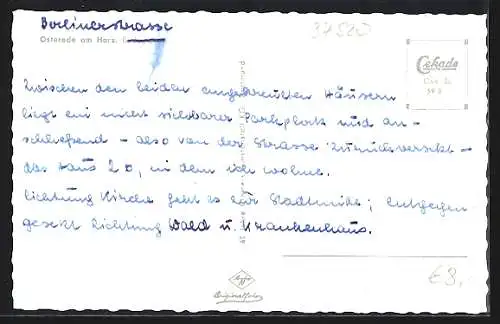 Berlinerstrasse
37520
Osterode am Harz.
Cekade
Zwischen den beiden angekreuzten Häusern
liegt ein nicht sichtbarer Parkplatz und an-
schließend – also von der Strasse zurückversetzt –
das Haus 20, in dem ich wohne.
Richtung Kirche geht es zur Stadtmitte; entgegen
gesetzt Richtung Wald u. Krankenhaus.
Agfa
Originalfoto
€3,-